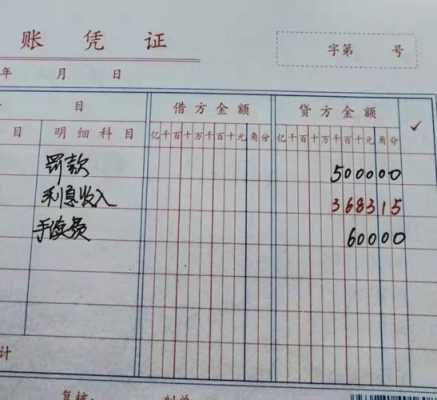 账凭证
字第 号
年 月 日
目 借方金额 贷方金额 ✓
目 明细科目 亿千百十万千百十元角分 亿千百十万千百十元角分
罚款 500000
利息收入 368315
手续费 60000
计
复核: 制单